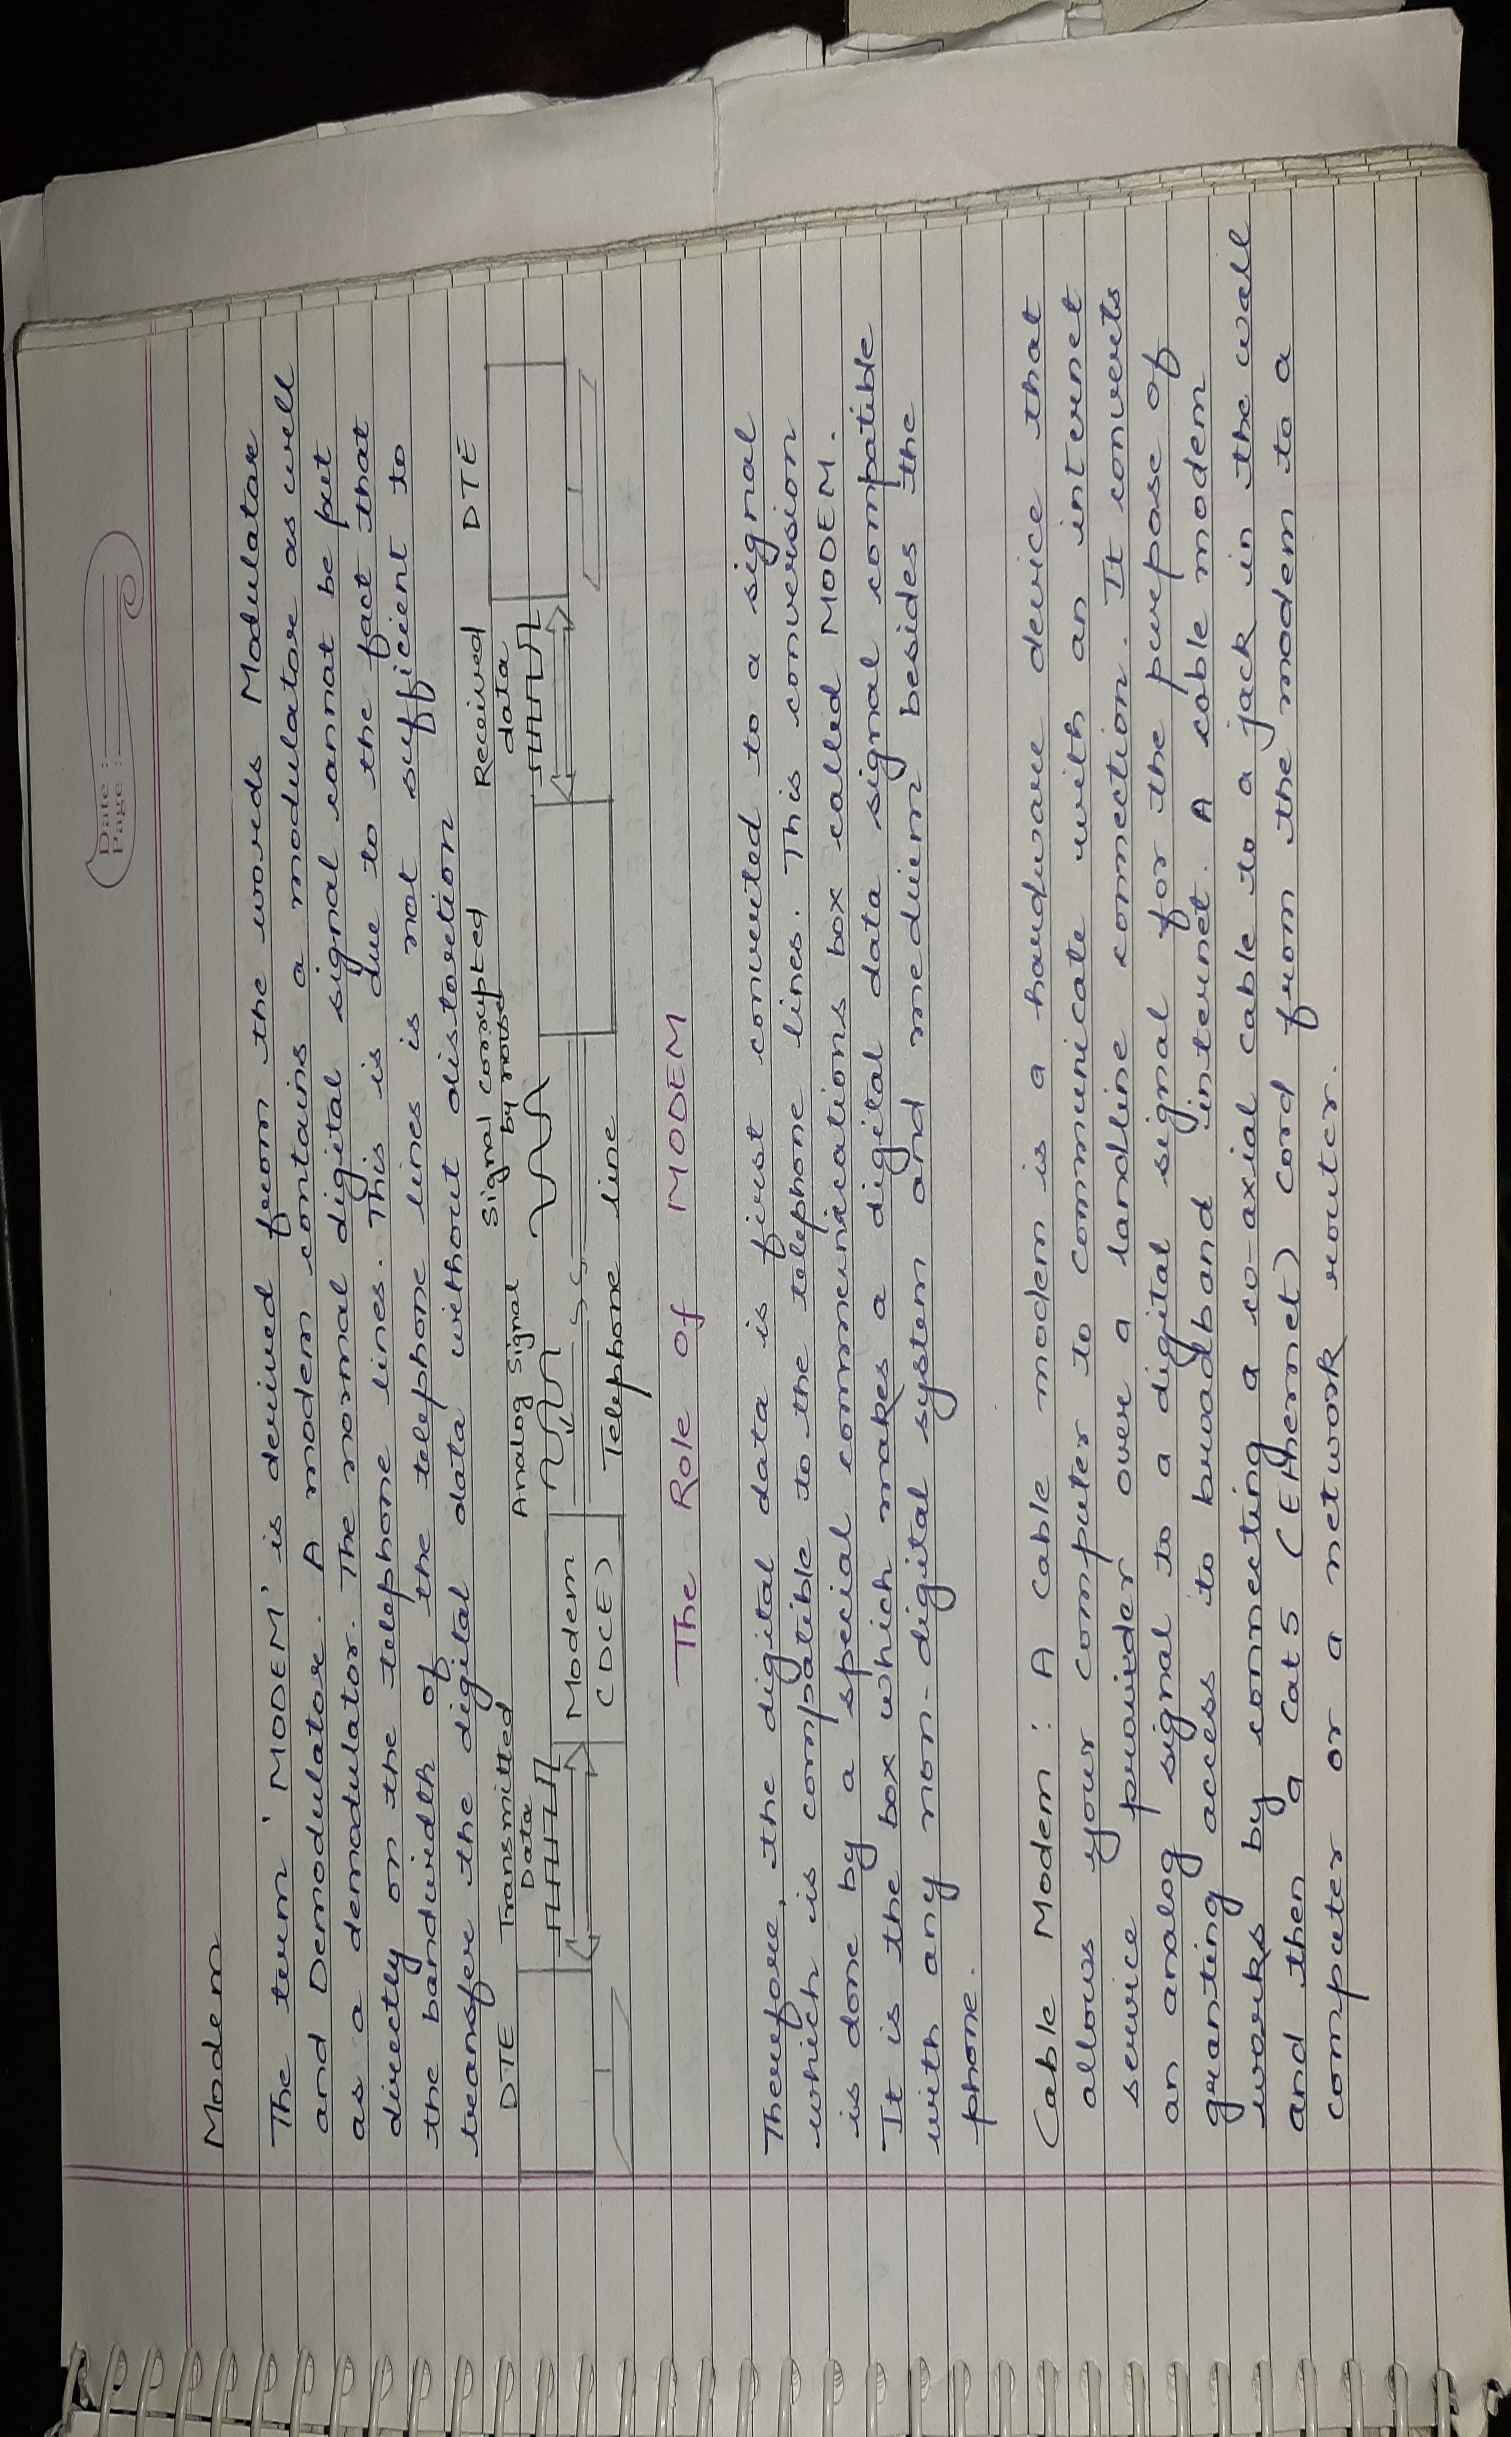 Date :
Page :
Modem
The term 'MODEM' is derived from the words Modulator
and Demodulator. A modem contains a modulator as well
as a demodulator. The normal digital signal cannot be put
directly on the telephone lines. This is due to the fact that
the bandwidth of the telephone lines is not sufficient to
transfer the digital data without distortion
DTE Transmitted Data Analog Signal Signal corrupted by noise Received data DTE
Modem
(DCE)
Telephone line
The Role Of MODEM
Therefore, the digital data is first converted to a signal
which is compatible to the telephone lines. This conversion
is done by a special communications box called MODEM.
It is the box which makes a digital data signal compatible
with any non-digital system and medium besides the
phone.
Cable Modem : A cable modem is a hardware device that
allows your computer to communicate with an internet
service provider over a landline connection. It converts
an analog signal to a digital signal for the purpose of
granting access to broadband internet. A cable modem
works by connecting a co-axial cable to a jack in the wall
and then a Cat5 (Ethernet) cord from the modem to a
computer or a network router.